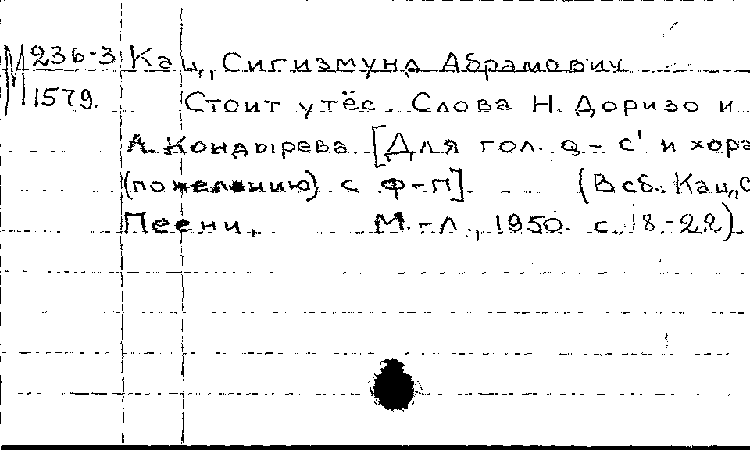 М 236-3 Кац, Сигизмунд Абрамович
1579. Стоит утёс. Слова Н. Доризо и
А. Кондырева [Для гол. a - c' и хора
(по желанию) с ф-п]. (В сб. Кац, С
Песни, М.-Л., 1950. с. 18-22)